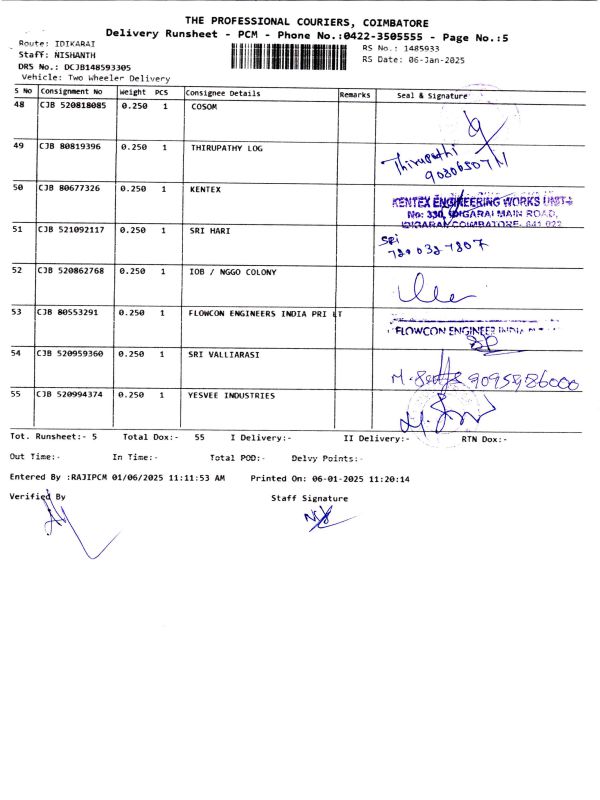 THE PROFESSIONAL COURIERS, COIMBATORE
Delivery Runsheet - PCM - Phone No.:0422-3505555 - Page No.:5
Route: IDIKARAI
Staff: NISHANTH
DRS No.: DCJB148593305
Vehicle: Two Wheeler Delivery
RS No.: 1485933
RS Date: 06-Jan-2025
S No Consignment No Weight PCS Consignee Details Remarks Seal & Signature
48 CJB 520818085 0.250 1 COSOM
49 CJB 80819396 0.250 1 THIRUPATHY LOG
Thirupathi
50 CJB 80677326 0.250 1 KENTEX
KENTEX ENGINEERING WORKS UNIT
No: 330, IDIGARAI MAIN ROAD,
IDIGARAI COIMBATORE. 641 022
51 CJB 521092117 0.250 1 SRI HARI
Sri
52 CJB 520862768 0.250 1 IOB / NGGO COLONY
53 CJB 80553291 0.250 1 FLOWCON ENGINEERS INDIA PRI LT
FLOWCON ENGINEER INDIA
54 CJB 520959360 0.250 1 SRI VALLIARASI
55 CJB 520994374 0.250 1 YESVEE INDUSTRIES
Tot. Runsheet:- 5 Total Dox:- 55 I Delivery:- II Delivery:- RTN Dox:-
Out Time:- In Time:- Total POD:- Delvy Points:-
Entered By :RAJIPCM 01/06/2025 11:11:53 AM Printed On: 06-01-2025 11:20:14
Verified By Staff Signature